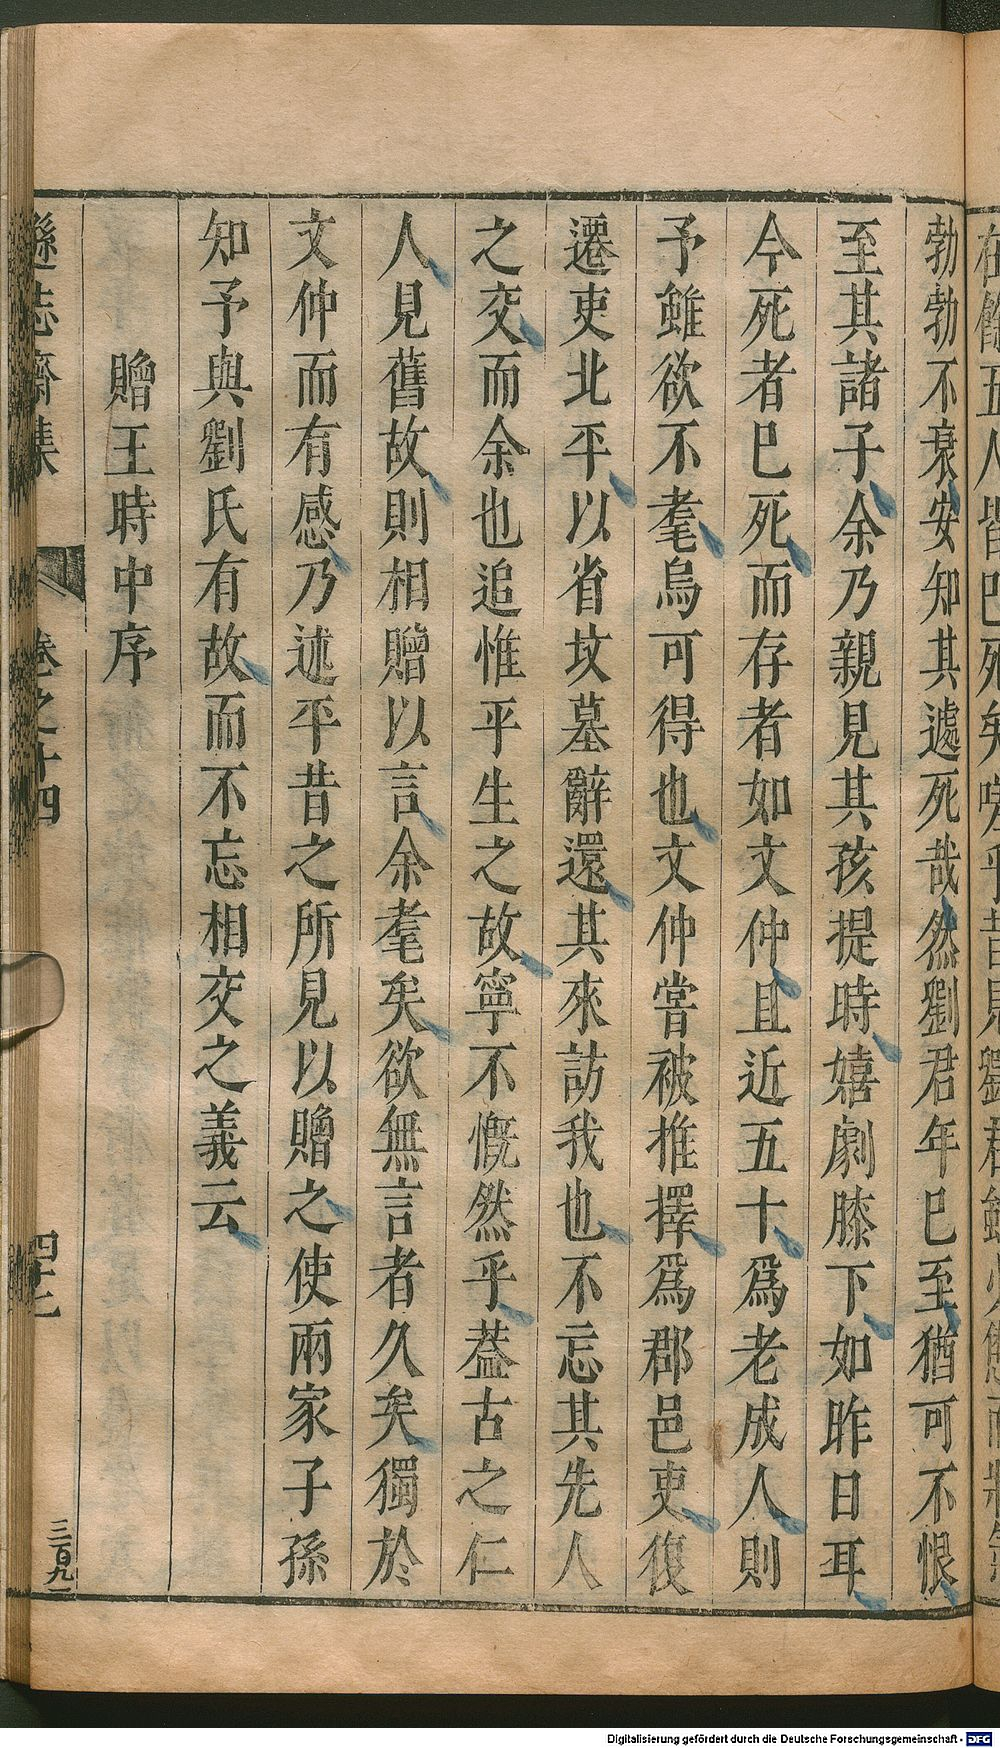 勃勃不衰安知其遽死哉然劉君年巳至猶可不恨
至其諸子余乃親見其孩提時嬉劇膝下如昨日耳
今死者巳死而存者如文仲且近五十爲老成人則
予雖欲不耄烏可得也文仲嘗被推擇爲郡邑吏復
遷吏北平以省坟墓辭還其來訪我也不忘其先人
之交而余也追惟平生之故寧不慨然乎葢古之仁
人見舊故則相贈以言余耄矣欲無言者久矣獨於
文仲而有感乃述平昔之所見以贈之使兩家子孫
知予與劉氏有故而不忘相交之義云
贈王時中序
遜志齋集 卷之十四 四十七
三百九一
Digitalisierung gefördert durch die Deutsche Forschungsgemeinschaft - DFG